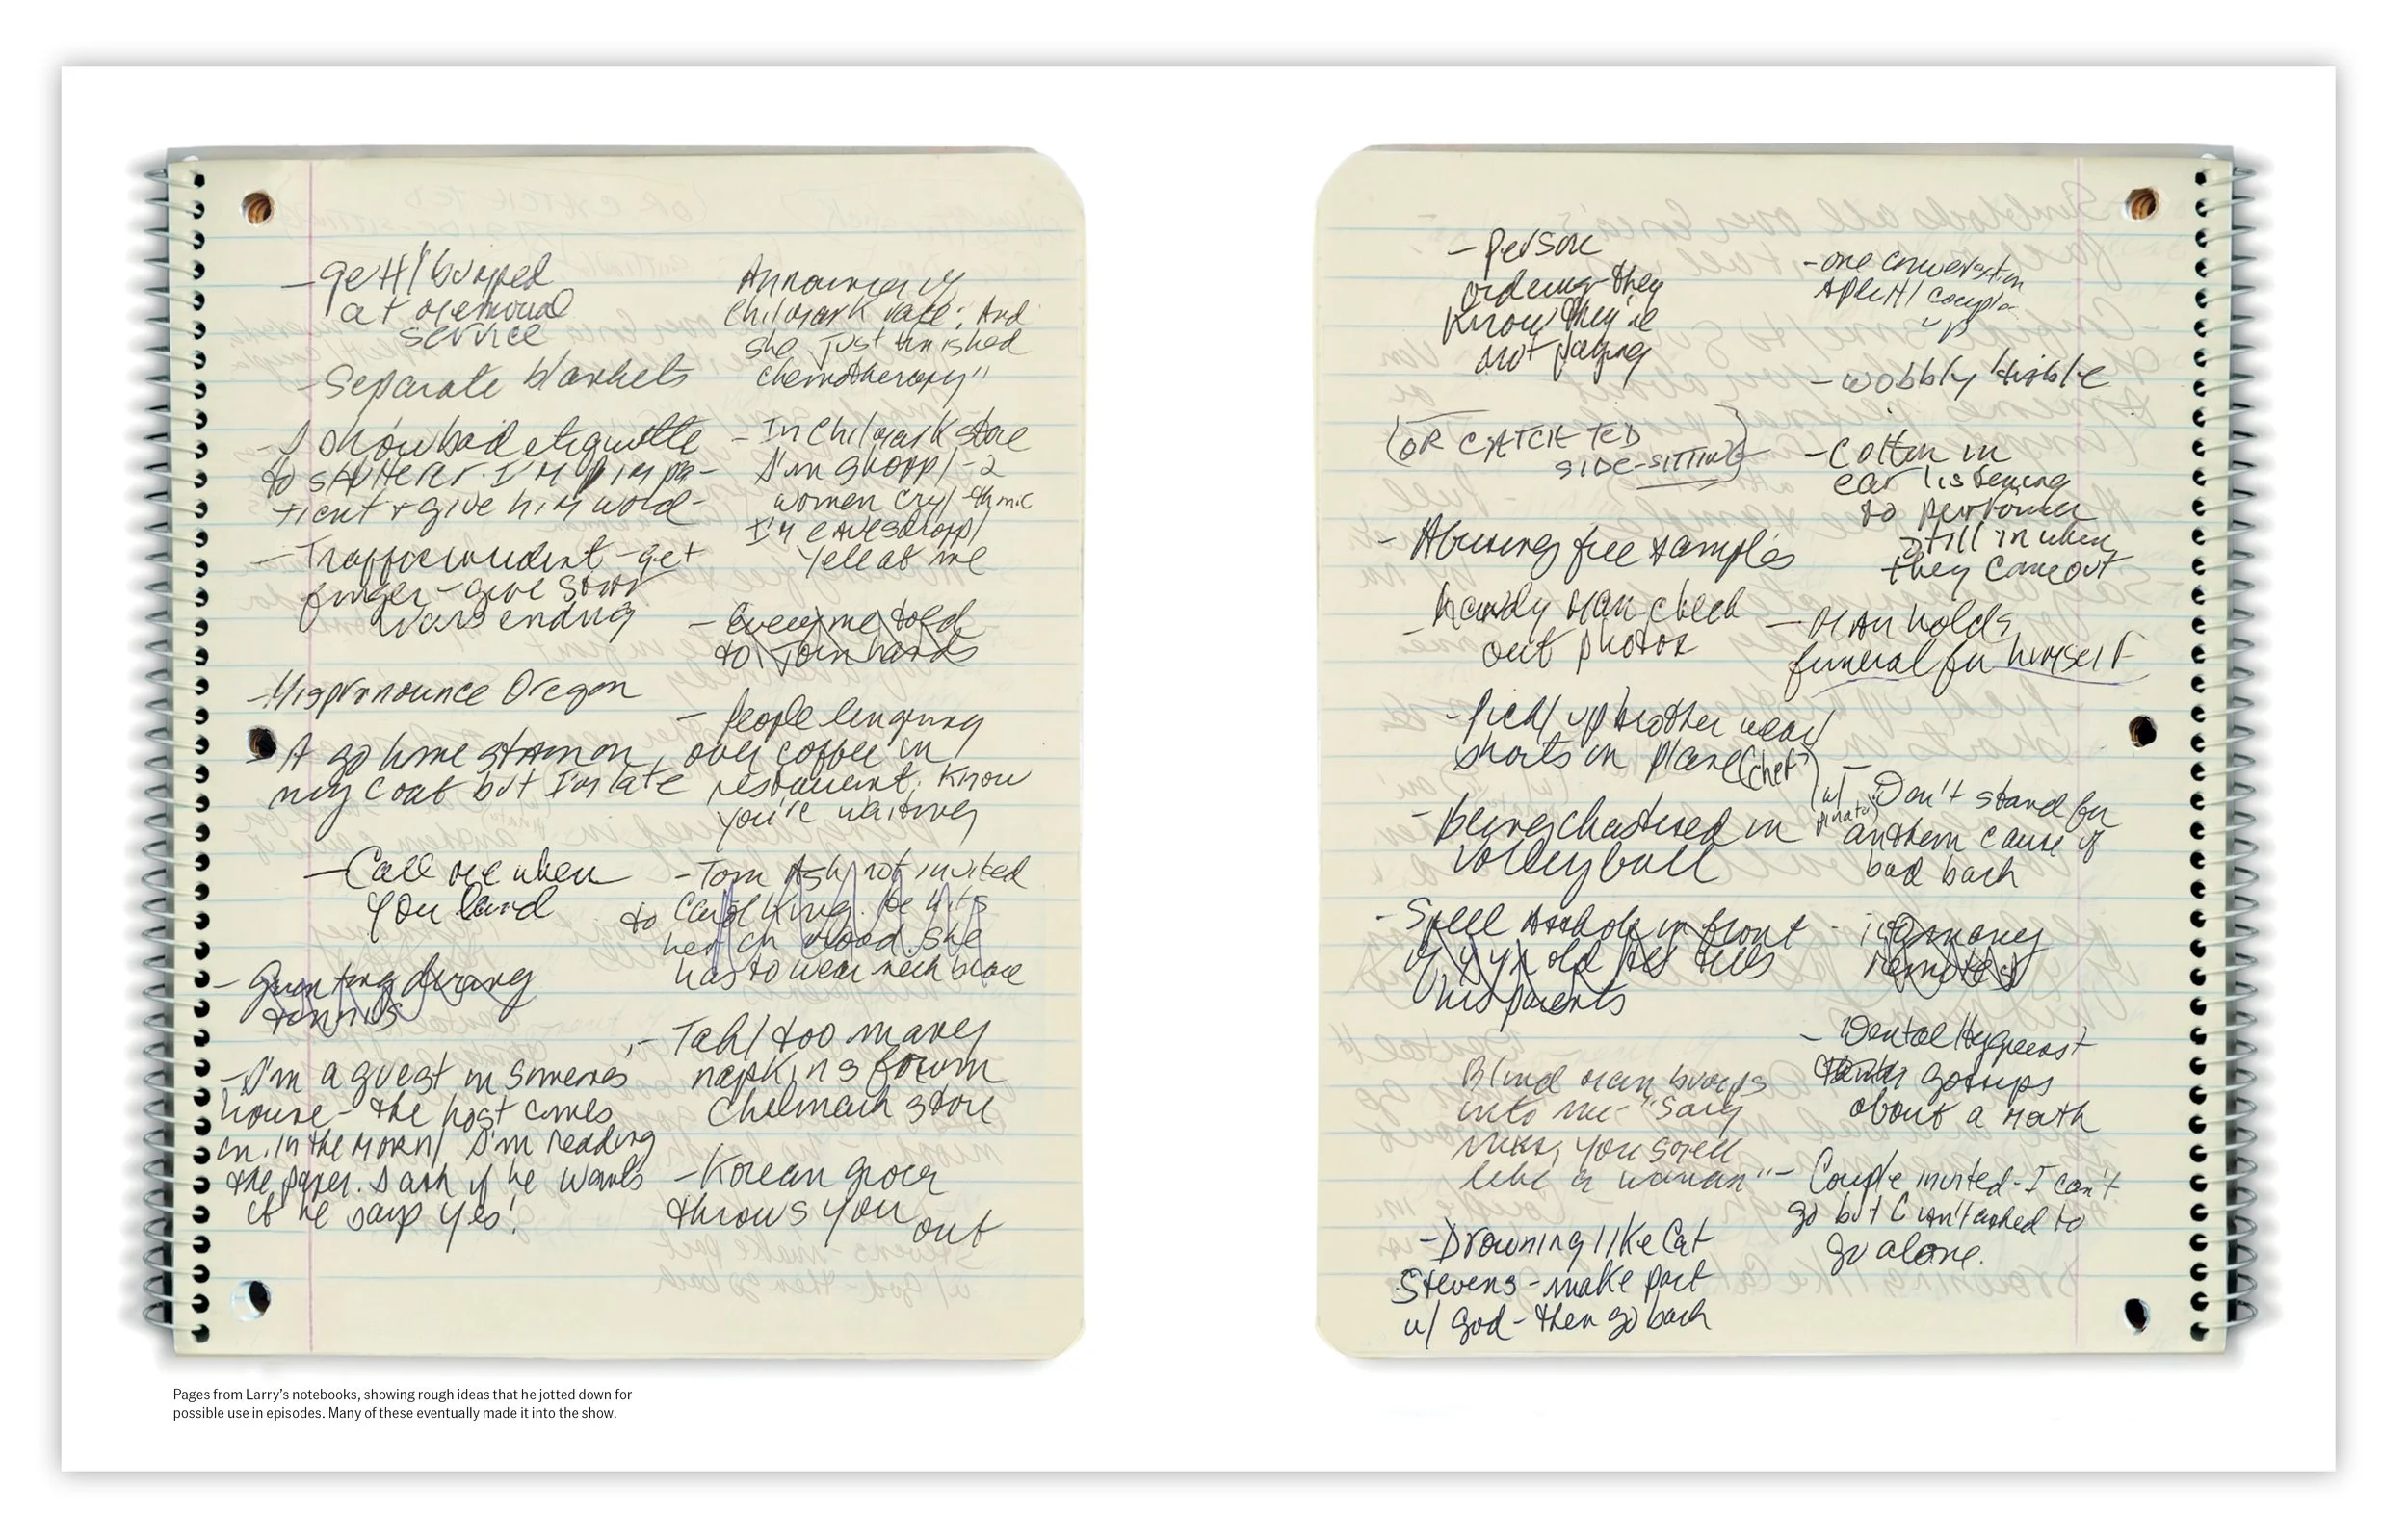 - gett/ bumped
at memorial
service
- Separate blankets
- I show bad etiquette
to stutterer. I'm impa-
tient & give him word-
- Traffic incident - get
finger - give Star
Wars ending
- Mispronounce Oregon
A go home stain on
my coat but I'm late
- Call me when
you land
- Grunting during
tennis
- I'm a guest in someones
house - the host comes
in. in the morn/ I'm reading
the paper. I ask if he wants
it he says yes!
Announce
Chilmark : And
she just finished
chemotherapy"
- In Chilmark store
I'm shopp/ - 2
women cry/ - think
I'm eavesdropp/
Yell at me
- Everyone told
to join hands
- People lingering
over coffee in
restaurant, know
you're waiting
- Tom Ash/ not invited
to Carol King. he hits
her in . she
has to wear neck brace
- Tak/ too many
napkins from
Chilmark store
- Korean grocer
throws you out
- Person
ordering they
know they're
not paying
(OR CATCH TED
SIDE-SITTING)
- Abusing free samples
- handy man check
out photos
- Pick/ up brother wear/
shorts in plane (chet)
- Being chastised in
volleyball
- Spell Asshole in front
of 4 yr old he tells
his parents
Blind man bumps
into me - "Sorry
miss, you smell
like a woman"
- Drowning like Cat
Stevens - make pact
w/ God - then go back
- one conversation
split/ couples
up
- wobbly table
- Cotton in
ear listening
to performer
still in when
they come out
- Man holds
funeral for himself
- Don't stand for
anthem cause of
bad back
- too many
remotes
- Dental Hygienist
gossips
about a math
- Couple invited - I can't
go but C isn't asked to
go alone.
Pages from Larry's notebooks, showing rough ideas that he jotted down for
possible use in episodes. Many of these eventually made it into the show.